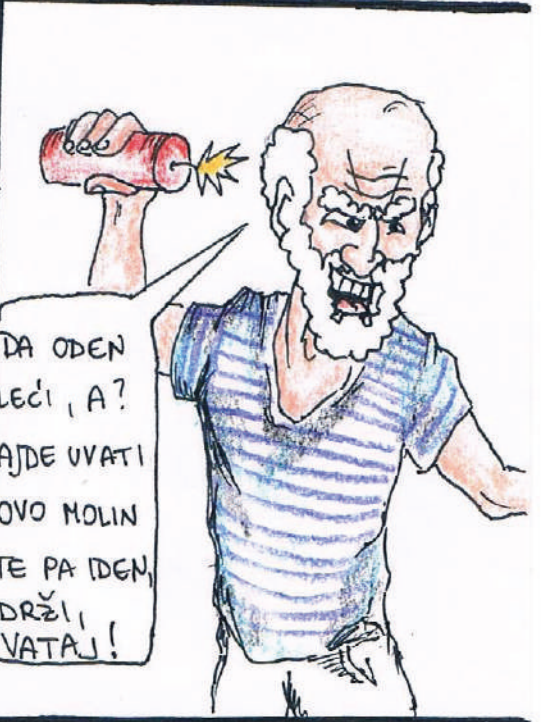 DA ODEN
LEĆI, A?
AJDE UVATI
OVO MOLIN
TE PA IDEN,
DRŽI,
VATAJ!